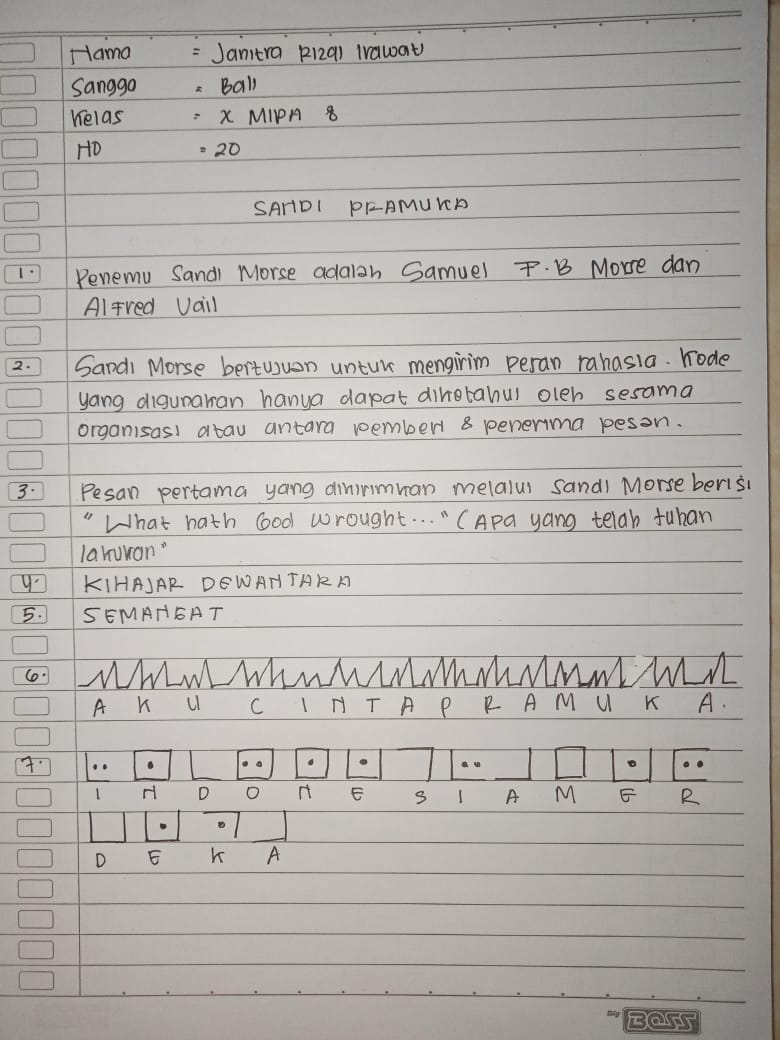 Nama = Janitra Rizqi Irawati
Sangga = Bali
Kelas = X MIPA 8
NO = 20
SANDI PRAMUKA
1. Penemu Sandi Morse adalah Samuel F.B Morse dan
Alfred Vail
2. Sandi Morse bertujuan untuk mengirim pesan rahasia. Kode
yang digunakan hanya dapat diketahui oleh sesama
organisasi atau antara pemberi & penerima pesan.
3. Pesan pertama yang dikirimkan melalui Sandi Morse berisi
"What hath God wrought..." (Apa yang telah tuhan
lakukan"
4. KIHAJAR DEWANTARA
5. SEMANGAT
6.
A K U C I N T A P R A M U K A.
7.
I N D O N E S I A M E R
D E K A
Big BOSS